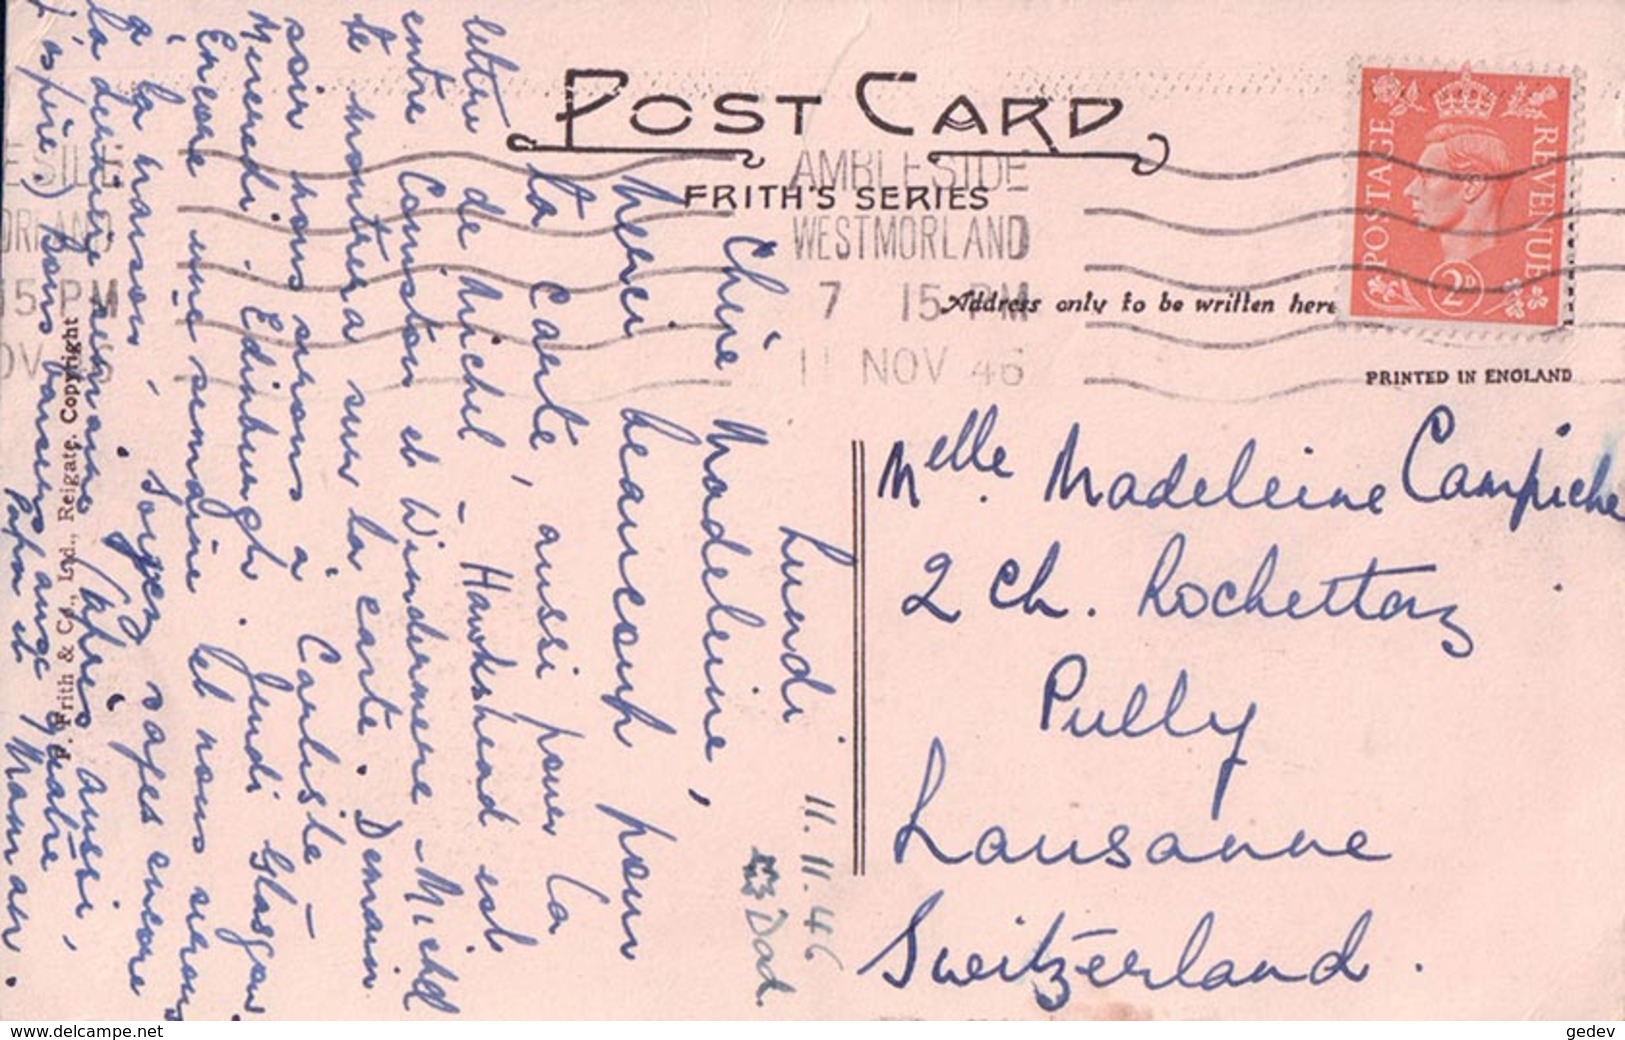 POST CARD
FRITH'S SERIES
AMBLESIDE
WESTMORLAND
7 15 PM
11 NOV 46
Address only to be written here
POSTAGE
REVENUE
2D
PRINTED IN ENGLAND
Lundi 11.11.46
Dad.
Chère Madeleine,
Merci beaucoup pour
ta carte, aussi pour la
lettre de Michel – Hawkshead est
entre Coniston et Windermere – Michel
te montrera sur la carte. Demain
soir nous serons à Carlisle –
Mercredi. Edinburgh. Jeudi Glasgow
Encore une semaine et nous serons
à la maison. Soyez sages encore
la dernière semaine (après aussi,
j'espère.) Bons baisers aux quatre
Papa et Maman.
F. Frith & Co., Ltd., Reigate. Copyright
Melle. Madeleine Campiche
2 Ch. Rochettaz
Pully
Lausanne
Switzerland.
www.delcampe.net
gedev